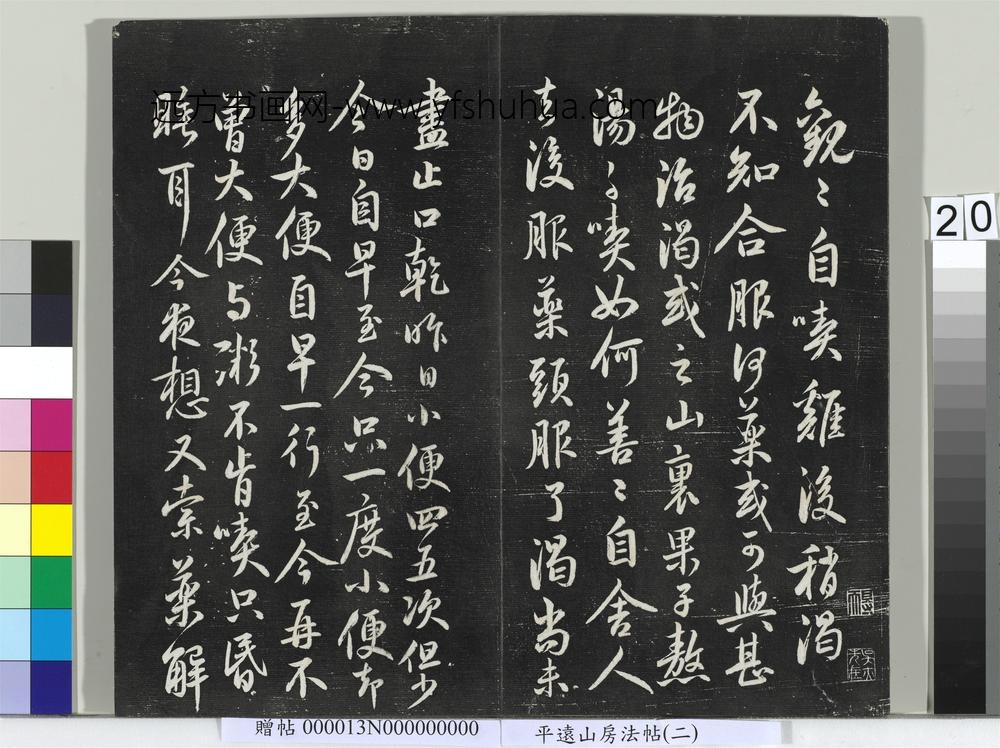 觀〻自喫雞後稍渴
不知合服何藥或可與甚
物治渴或之山裏果子熬
湯喫如何善〻自舍人
去後服藥頭服了渴尚未
盡止口乾昨日小便四五次但少
今日自早至今一度小便却
多大便自早一行至今再不
曾大便与粥不肯喫只昏
睡耳今夜想又索藥解
远方书画网-www.yfshuhua.com
20
贈帖 000013N000000000
平遠山房法帖(二)